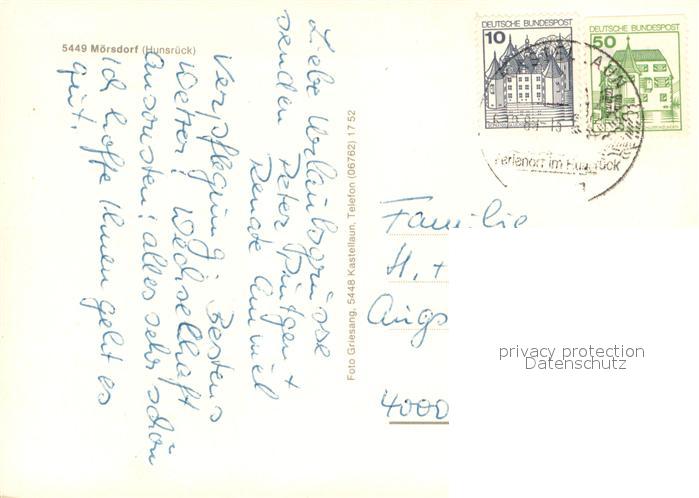 5449 Mörsdorf (Hunsrück)
Liebe Urlaubsgrüsse
senden Peter Püntgen +
Renate Ammel
Verpflegung: Bestens
Wetter: Wechselhaft
Ansonsten: alles sehr schön
Ich hoffe Ihnen geht es
gut.
Foto Griesang, 5448 Kastellaun, Telefon (06762) 17 52
DEUTSCHE BUNDESPOST
10
DEUTSCHE BUNDESPOST
50
Ferienort im Hunsrück
Familie
H. +
Angs
4000
privacy protection
Datenschutz